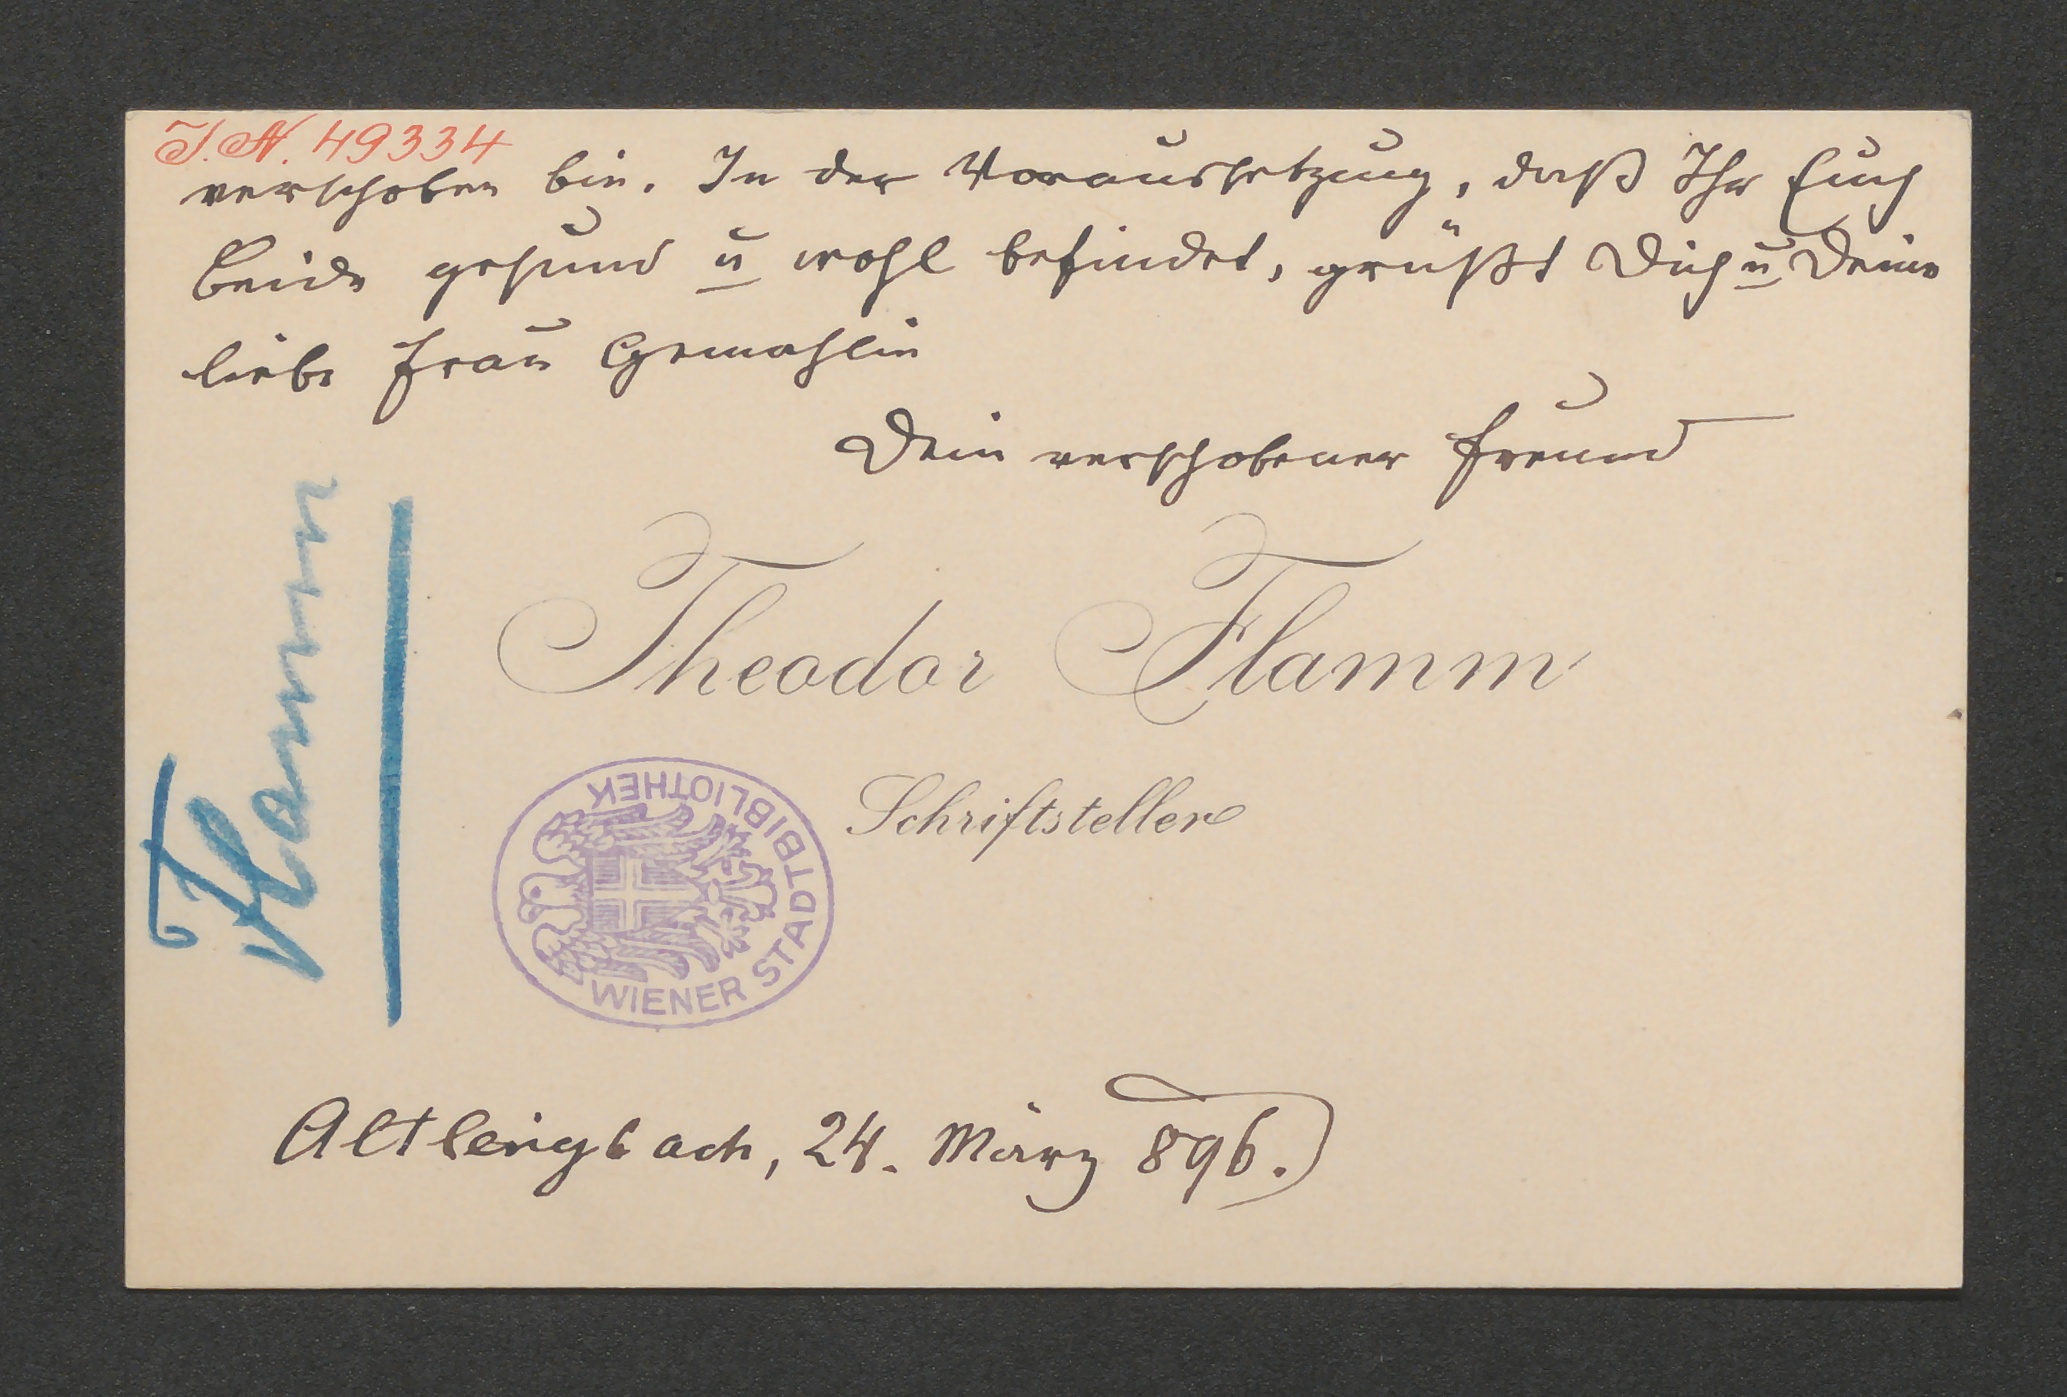 I. N. 49334
verschoben bin. In der Voraussetzung, daß Ihr Euch
beide gesund u wohl befindet, grüßt Dich u Deine
liebe Frau Gemahlin
Dein verschobener Freund
Flamm
Theodor Flamm
Schriftsteller
WIENER STADTBIBLIOTHEK
Altlengbach, 24. März 896.